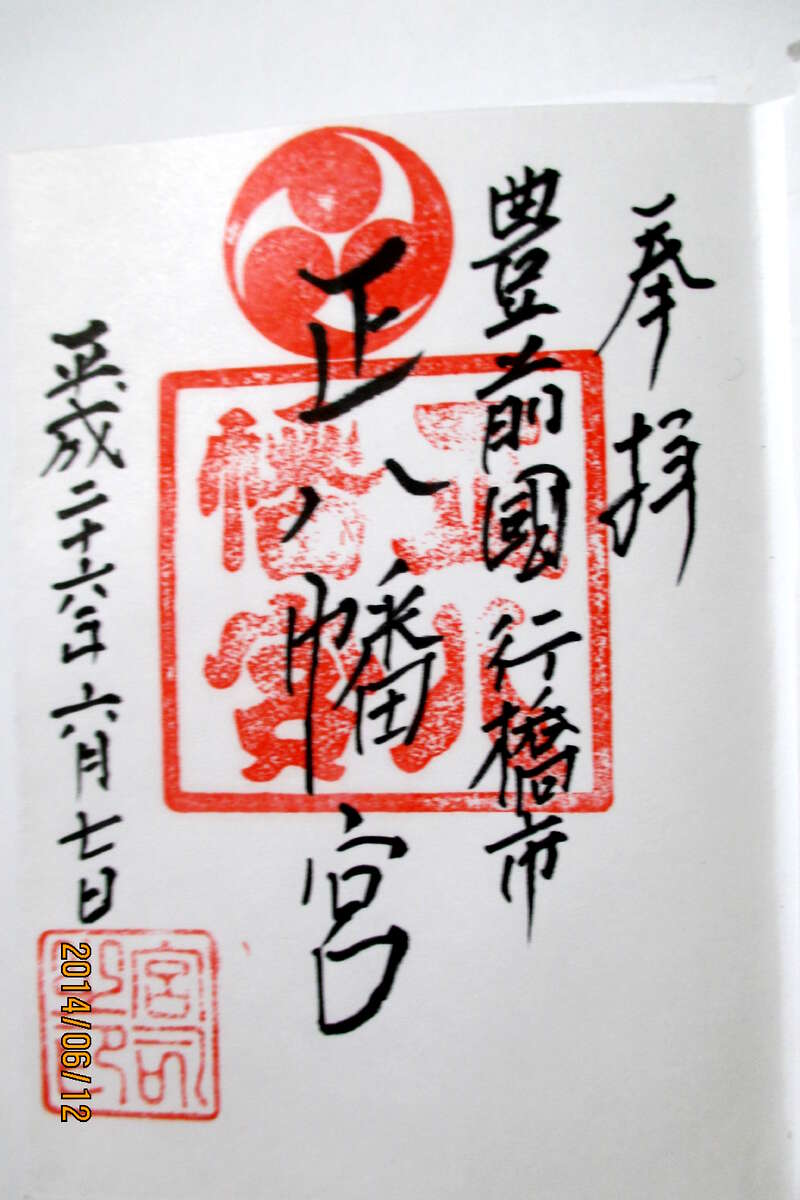 奉拝
豊前國 行橋市
正八幡宮
正八
幡宮
平成二十六年六月七日
宮司
之印
2014/06/12